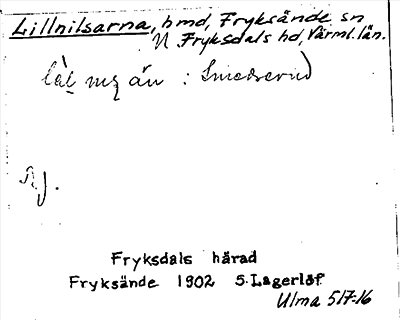 Lillnilsarna, hmd, Fryksände sn
N. Fryksdals hd, Värml. län.
lȧl mȩ än : Smedserud
Rj.
Fryksdals härad
Fryksände 1902 S. Lagerlöf
Ulma 517:16